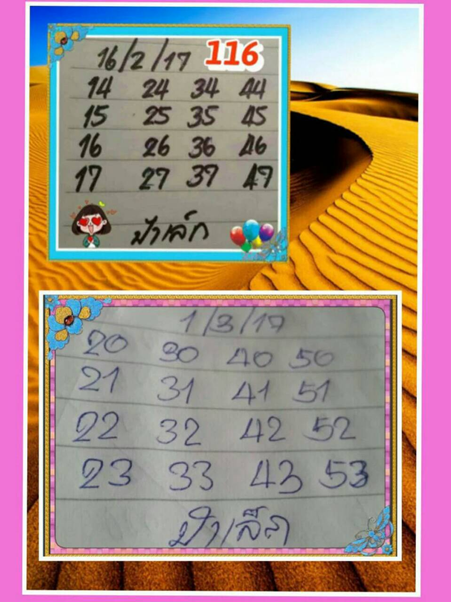 16/2/17 116
14 24 34 44
15 25 35 45
16 26 36 46
17 27 37 47
ป๋าเล็ก
1/3/17
20 30 40 50
21 31 41 51
22 32 42 52
23 33 43 53
ป๋าเล็ก